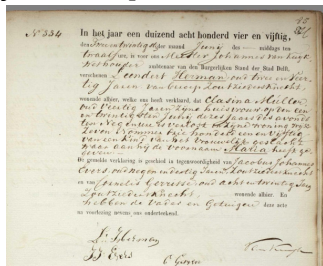 No 334
In het jaar een duizend acht honderd vier en vijftig,
den Twee en twintigsten der maand Junij des middags ten
twaalf ure, is voor ons Meester Johannes van
Wethouder ambtenaar van den Burgerlijken Stand der Stad Delft,
verschenen Leendert Herman oud twee en Veer-
tig Jaren van beroep Loodwitwerkersknecht
wonende alhier, welke ons heeft verklaard, dat Clasina
oud Veertig Jaren zijne huisvrouw op den een
en twintigsten Junij dezes jaars des avonds
ten Negen ure is verlost in zijne woning Wijk
Zeven Nommer honderd een en vijftig
van een kind van het vrouwelijk geslacht
waar aan hij de voornaam Maria heeft ge-
geven.
De gemelde verklaring is geschied in tegenwoordigheid van Jacobus Johannes
Evers, oud negen en dertig Jaren
en van Cornelis Gerritse, oud acht en twintig Jaren
wonende alhier. En
hebben de Vader en Getuigen deze acte
na voorlezing nevens ons onderteekend.
L. Herman
J J Evers
C Gerritse